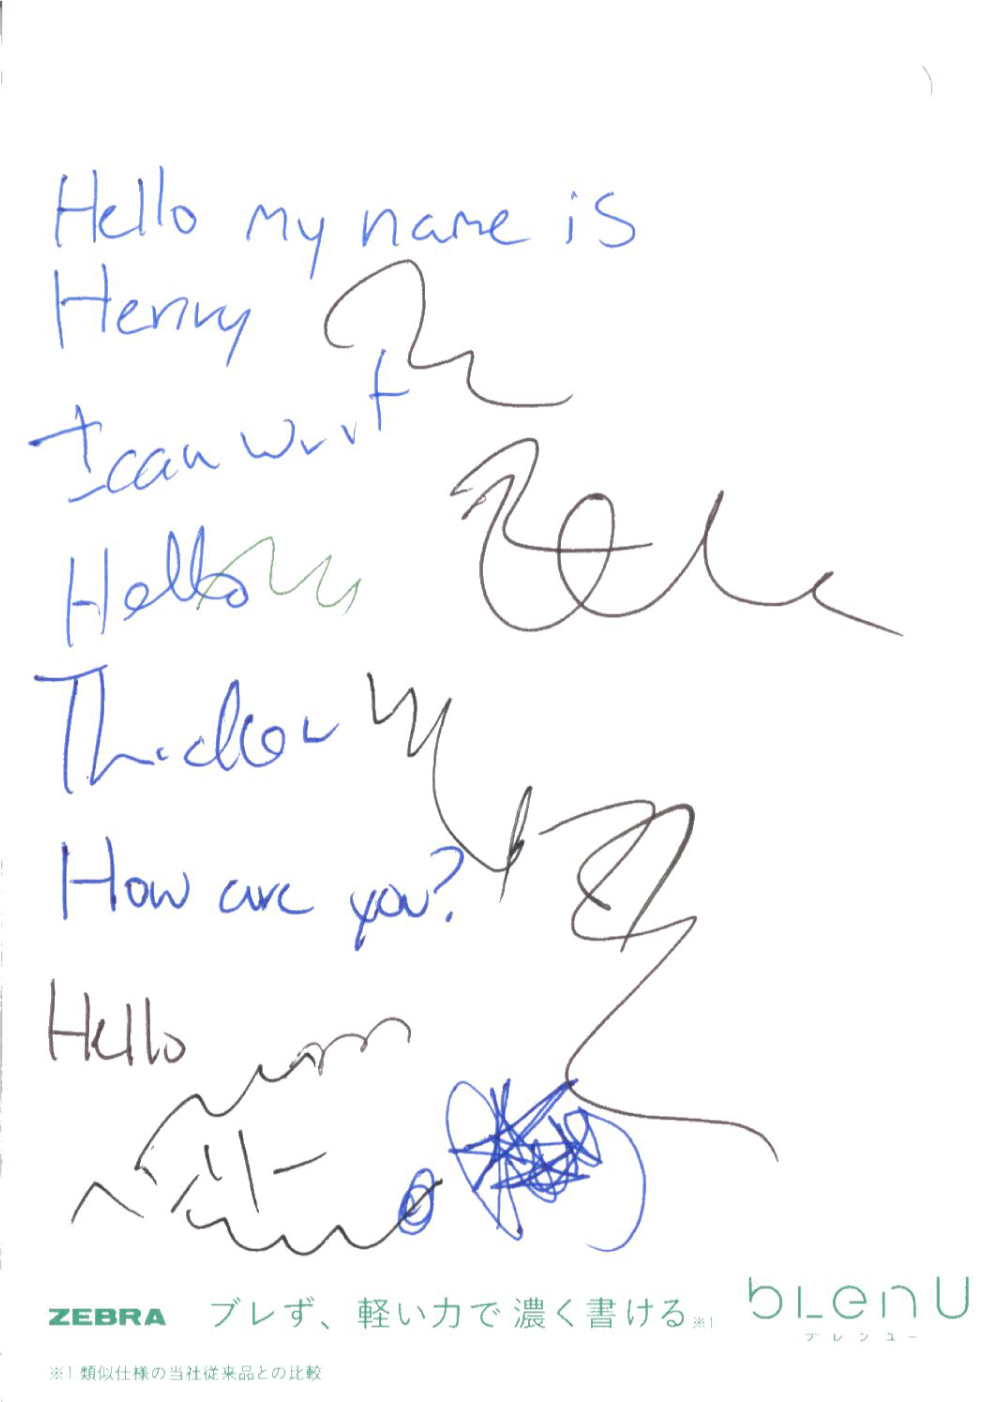 Hello my name is
Henry
I can
Hello
Thicker
How are you?
Hello
ZEBRA ブレず、軽い力で濃く書ける※1 bLen U
ブレンユー
※1 類似仕様の当社従来品との比較